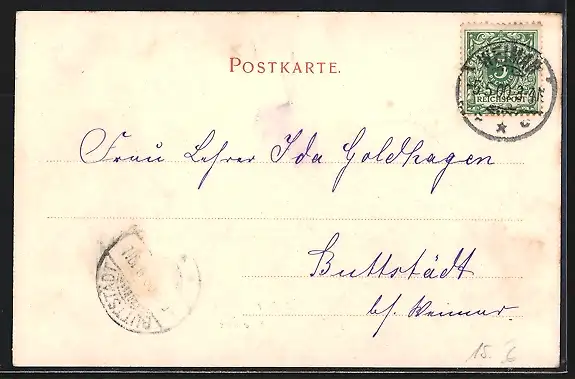 POSTKARTE.
WEIMAR
5
REICHSPOST
Frau Lehrer Ida Goldhagen
Buttstädt
bf. Weimar.
BUTTSTÄDT
15. 6